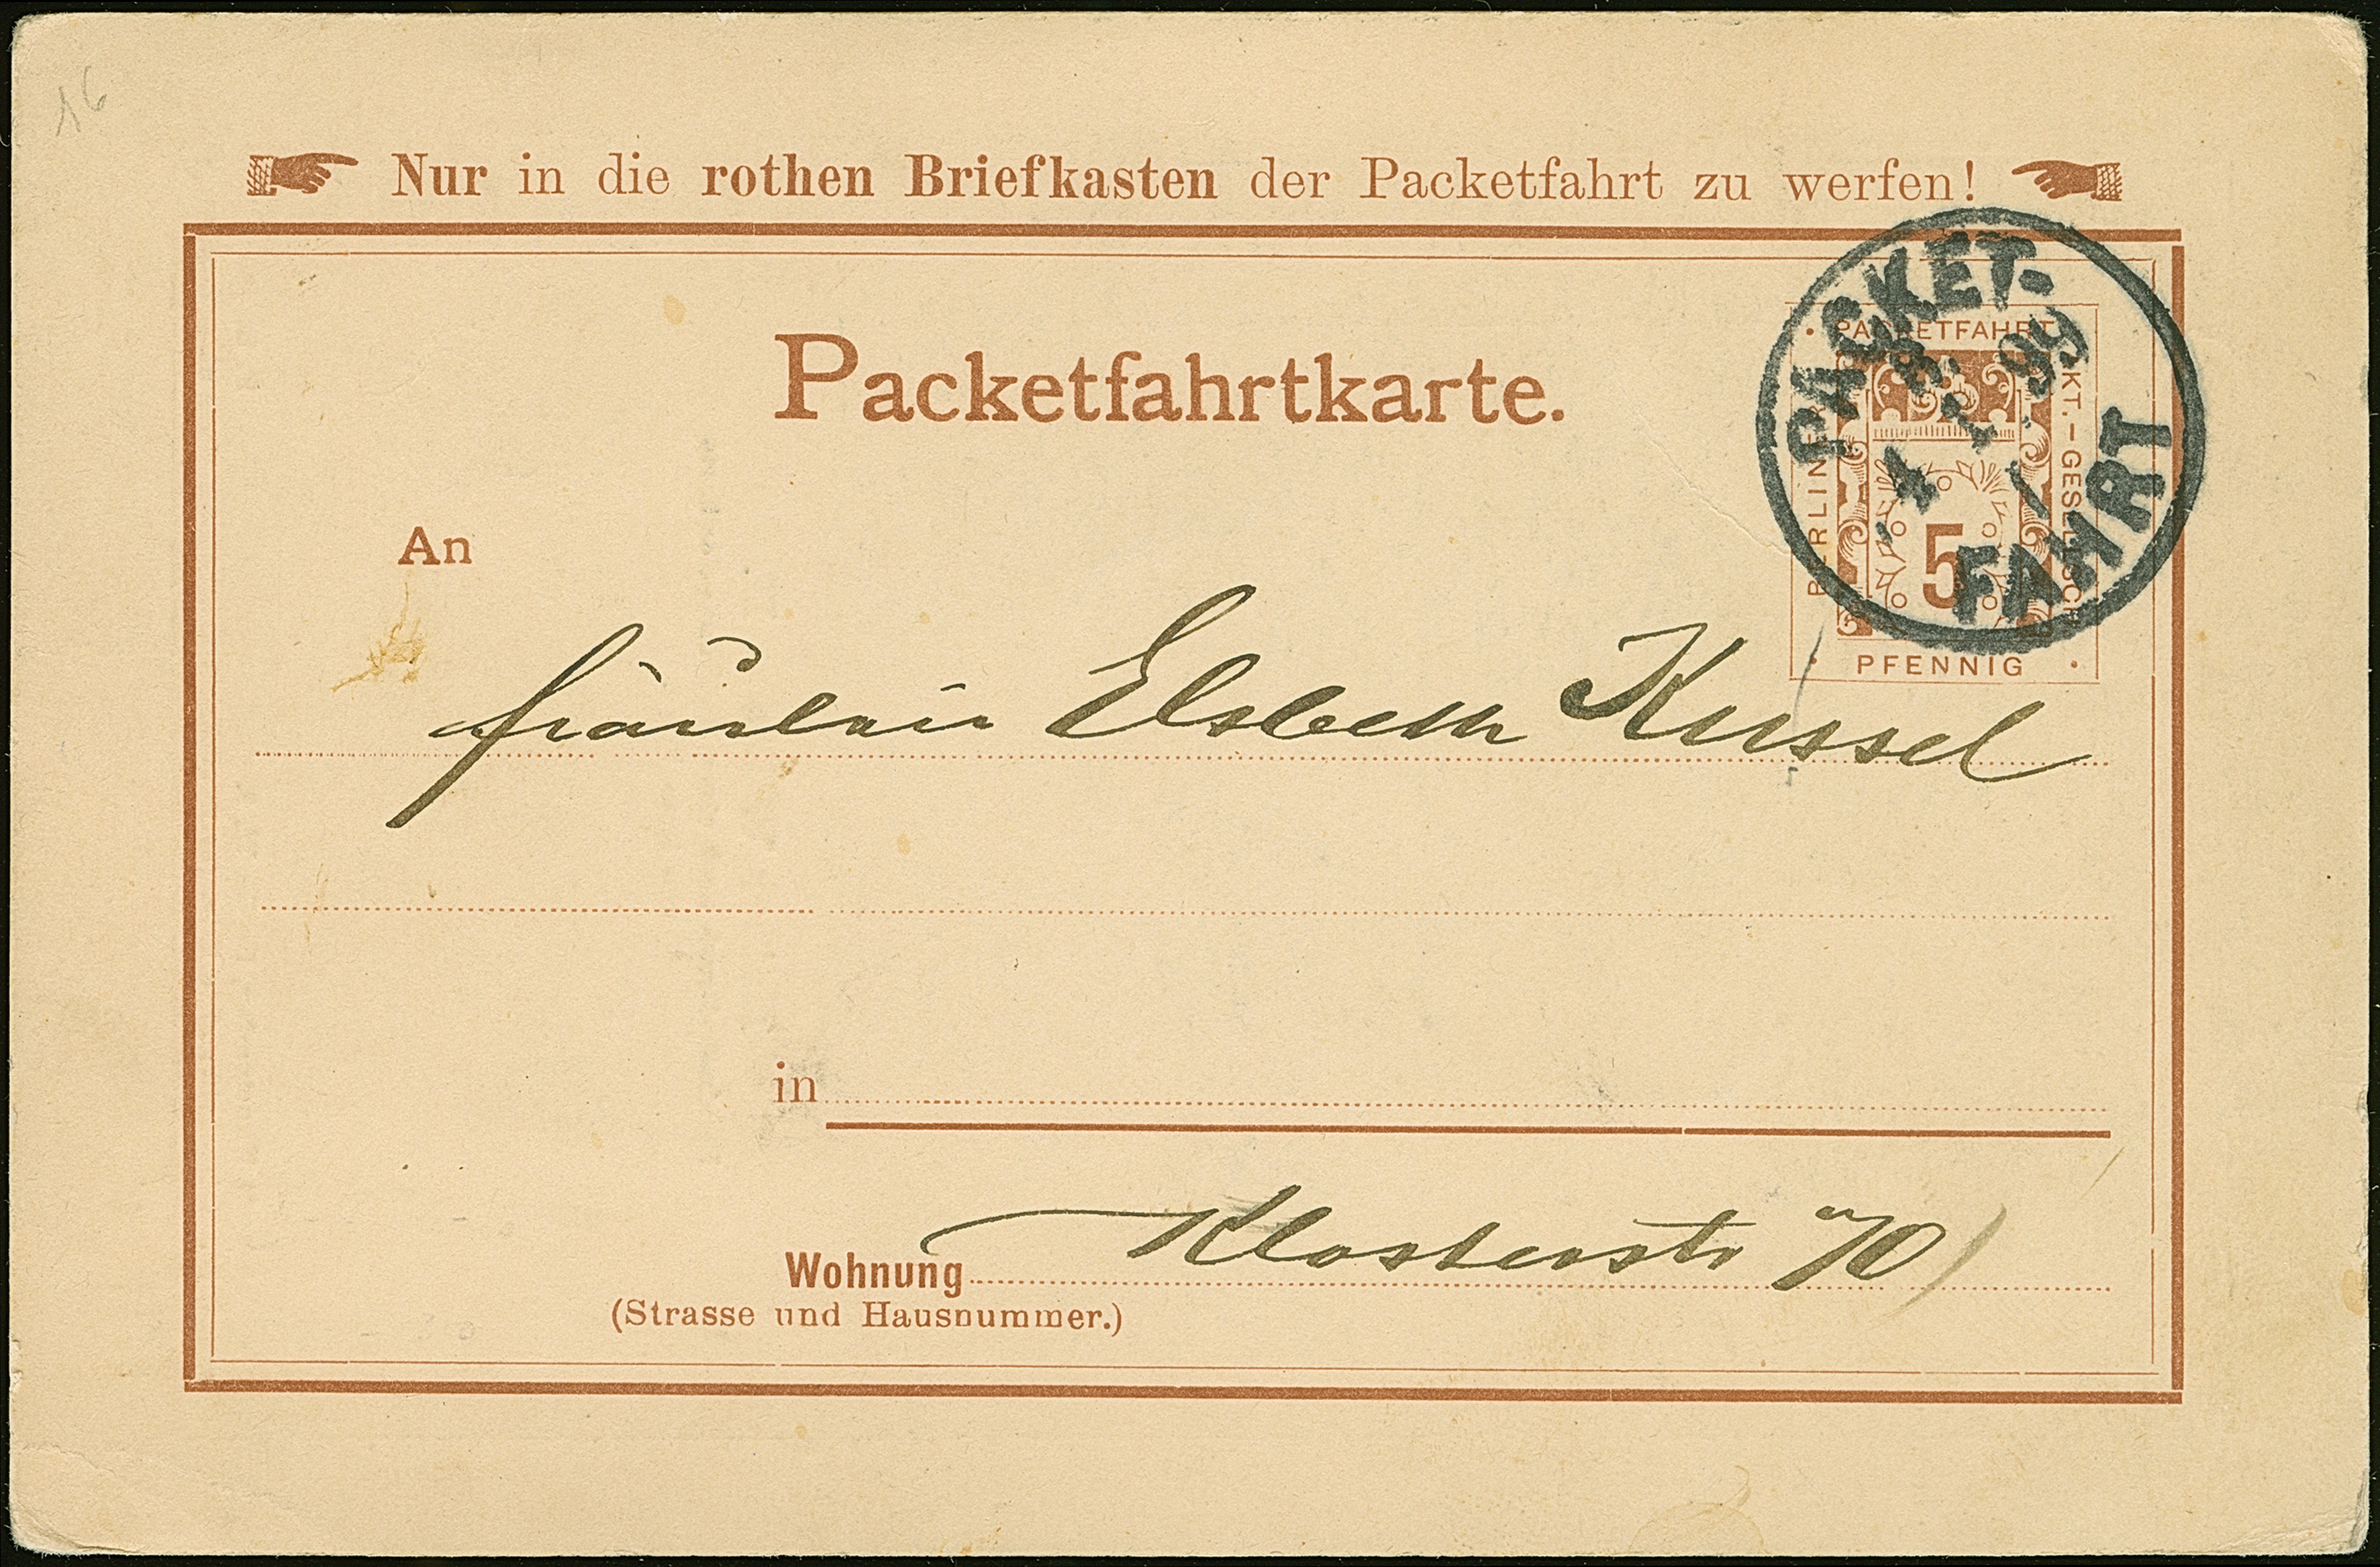 16
Nur in die rothen Briefkasten der Packetfahrt zu werfen!
PACKET-
FAHRT
99
PACKETFAHRT
BERLINER
AKT.-GESELLSCH
5
PFENNIG
Packetfahrtkarte.
An
Fräulein Elsbeth Kussel
in
Klosterstr 70
Wohnung
(Strasse und Hausnummer.)